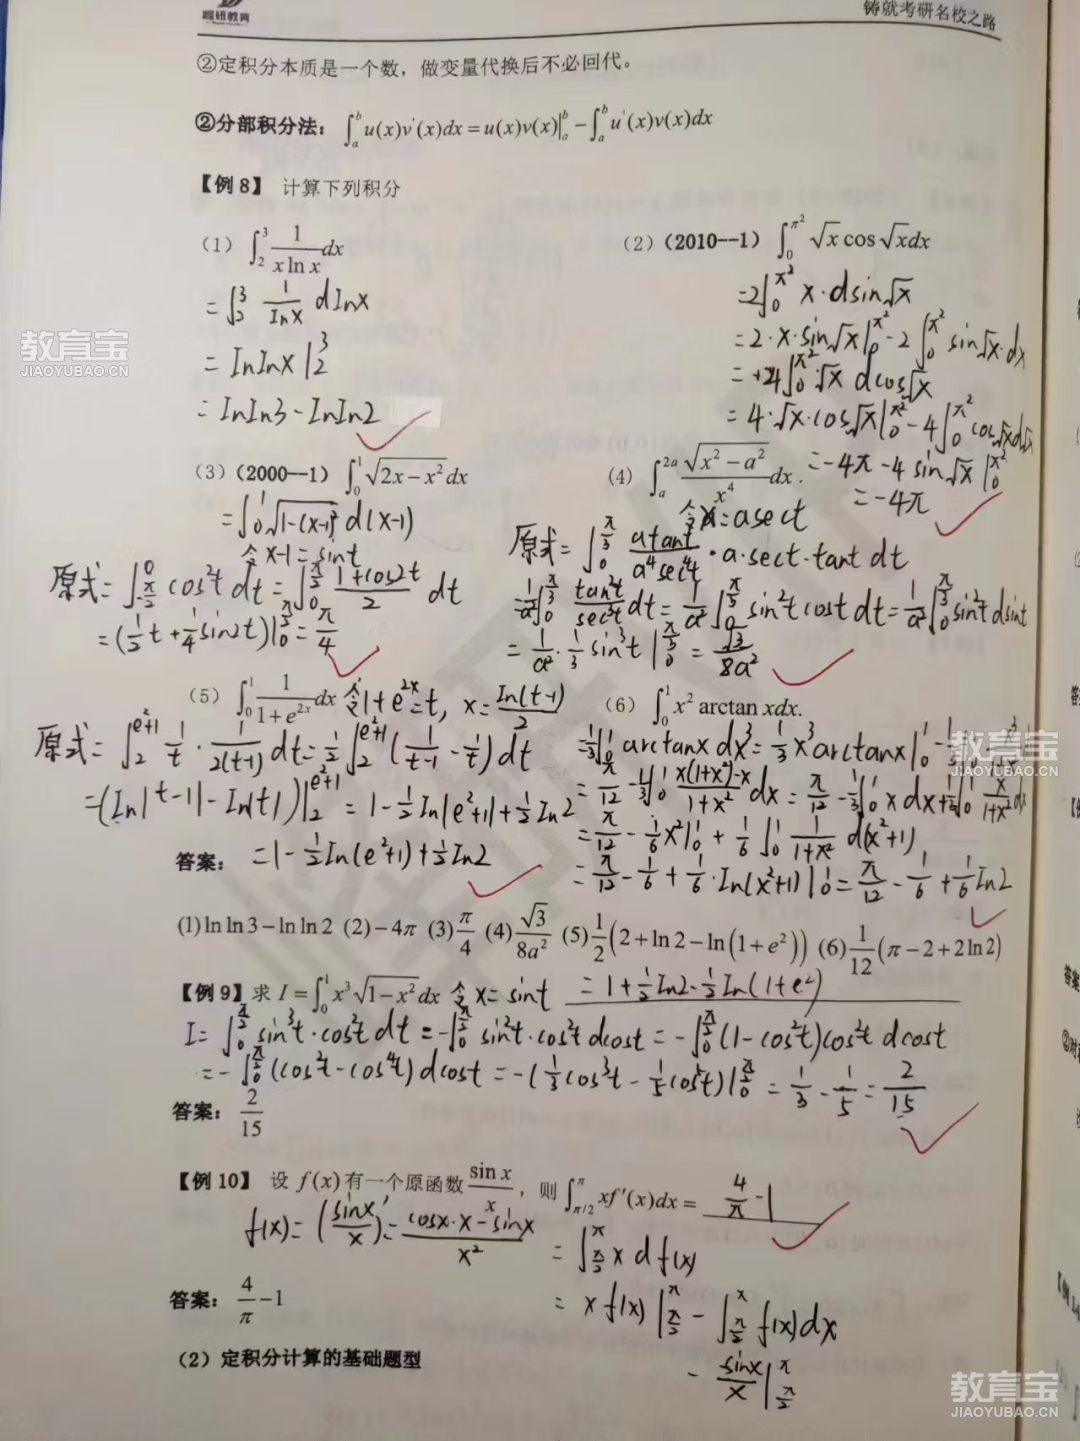 崛研教育
铸就考研名校之路
②定积分本质是一个数，做变量代换后不必回代。
②分部积分法：∫_a^b u(x)v'(x)dx = u(x)v(x)|_a^b − ∫_a^b u'(x)v(x)dx
【例8】 计算下列积分
(1) ∫_2^3 1/(x ln x) dx
= ∫_2^3 1/(lnx) dlnx
= lnlnx |_2^3
= lnln3 − lnln2
(2)(2010--1) ∫_0^{π²} √x cos √x dx
= 2∫_0^{π²} x·dsin√x
= 2·x·sin√x |_0^{π²} − 2∫_0^{π²} sin√x·dx
= +4∫_0^{π²} √x dcos√x
= 4·√x·cos√x |_0^{π²} − 4∫_0^{π²} cos√x d√x
= −4π − 4sin√x |_0^{π²}
= −4π
(3)(2000--1) ∫_0^1 √(2x − x²) dx
= ∫_0^1 √(1−(x−1)²) d(x−1)
令 x−1 = sint
原式 = ∫_{−π/2}^0 cos²t dt = ∫_0^{π/2} (1+cos2t)/2 dt
= (1/2 t + 1/4 sin2t)|_0^{π/2} = π/4
(4) ∫_a^{2a} √(x² − a²)/x⁴ dx .
令x = asect
原式 = ∫_0^{π/3} atant/(a⁴sec⁴t) · a·sect·tant dt
= 1/a² ∫_0^{π/3} tan²t/sec³t dt = 1/a² ∫_0^{π/3} sin²t cost dt = 1/a² ∫_0^{π/3} sin²t dsint
= 1/a² · 1/3 sin³t |_0^{π/3} = √3/(8a²)
(5) ∫_0^1 1/(1+e^{2x}) dx 令1+e^{2x} = t, x = ln(t−1)/2
原式 = ∫_2^{e²+1} 1/t · 1/(2(t−1)) dt = 1/2 ∫_2^{e²+1} (1/(t−1) − 1/t) dt
= (ln|t−1| − ln|t|)|_2^{e²+1} = 1 − 1/2 ln|e²+1| + 1/2 ln2
= 1 − 1/2 ln(e²+1) + 1/2 ln2
(6) ∫_0^1 x² arctan xdx.
= 1/3 ∫_0^1 arctanx dx³ = 1/3 x³ arctanx |_0^1 −
= π/12 − 1/3 ∫_0^1 (x(1+x²)−x)/(1+x²) dx = π/12 − 1/3 ∫_0^1 x dx + 1/3 ∫_0^1 x/(1+x²) dx
= π/12 − 1/6 x² |_0^1 + 1/6 ∫_0^1 1/(1+x²) d(x²+1)
= π/12 − 1/6 + 1/6 · ln(x²+1) |_0^1 = π/12 − 1/6 + 1/6 ln2
答案：
(1) ln ln 3 − ln ln 2 (2) − 4π (3) π/4 (4) √3/(8a²) (5) 1/2 (2 + ln 2 − ln(1 + e²)) (6) 1/12 (π − 2 + 2 ln 2)
= 1 + 1/2 ln2 − 1/2 ln(1+e²)
【例9】求 I = ∫_0^1 x³√(1 − x²) dx 令 x = sint
I = ∫_0^{π/2} sin³t·cos²t dt = −∫_0^{π/2} sin²t·cos²t dcost = −∫_0^{π/2} (1−cos²t)cos²t dcost
= −∫_0^{π/2} (cos²t − cos⁴t) dcost = −(1/3 cos³t − 1/5 cos⁵t)|_0^{π/2} = 1/3 − 1/5 = 2/15
答案： 2/15
【例10】 设 f(x) 有一个原函数 sin x/x ，则 ∫_{π/2}^π xf'(x)dx = 4/π − 1
f(x) = (sinx/x)' = (cosx·x − sinx)/x²
= ∫_{π/2}^π x df(x)
= x f(x) |_{π/2}^π − ∫_{π/2}^π f(x)dx
− sinx/x |_{π/2}^π
答案： 4/π − 1
（2）定积分计算的基础题型
教育宝
JIAOYUBAO.CN
教育宝
JIAOYUBAO.CN
教育宝
JIAOYUBAO.CN